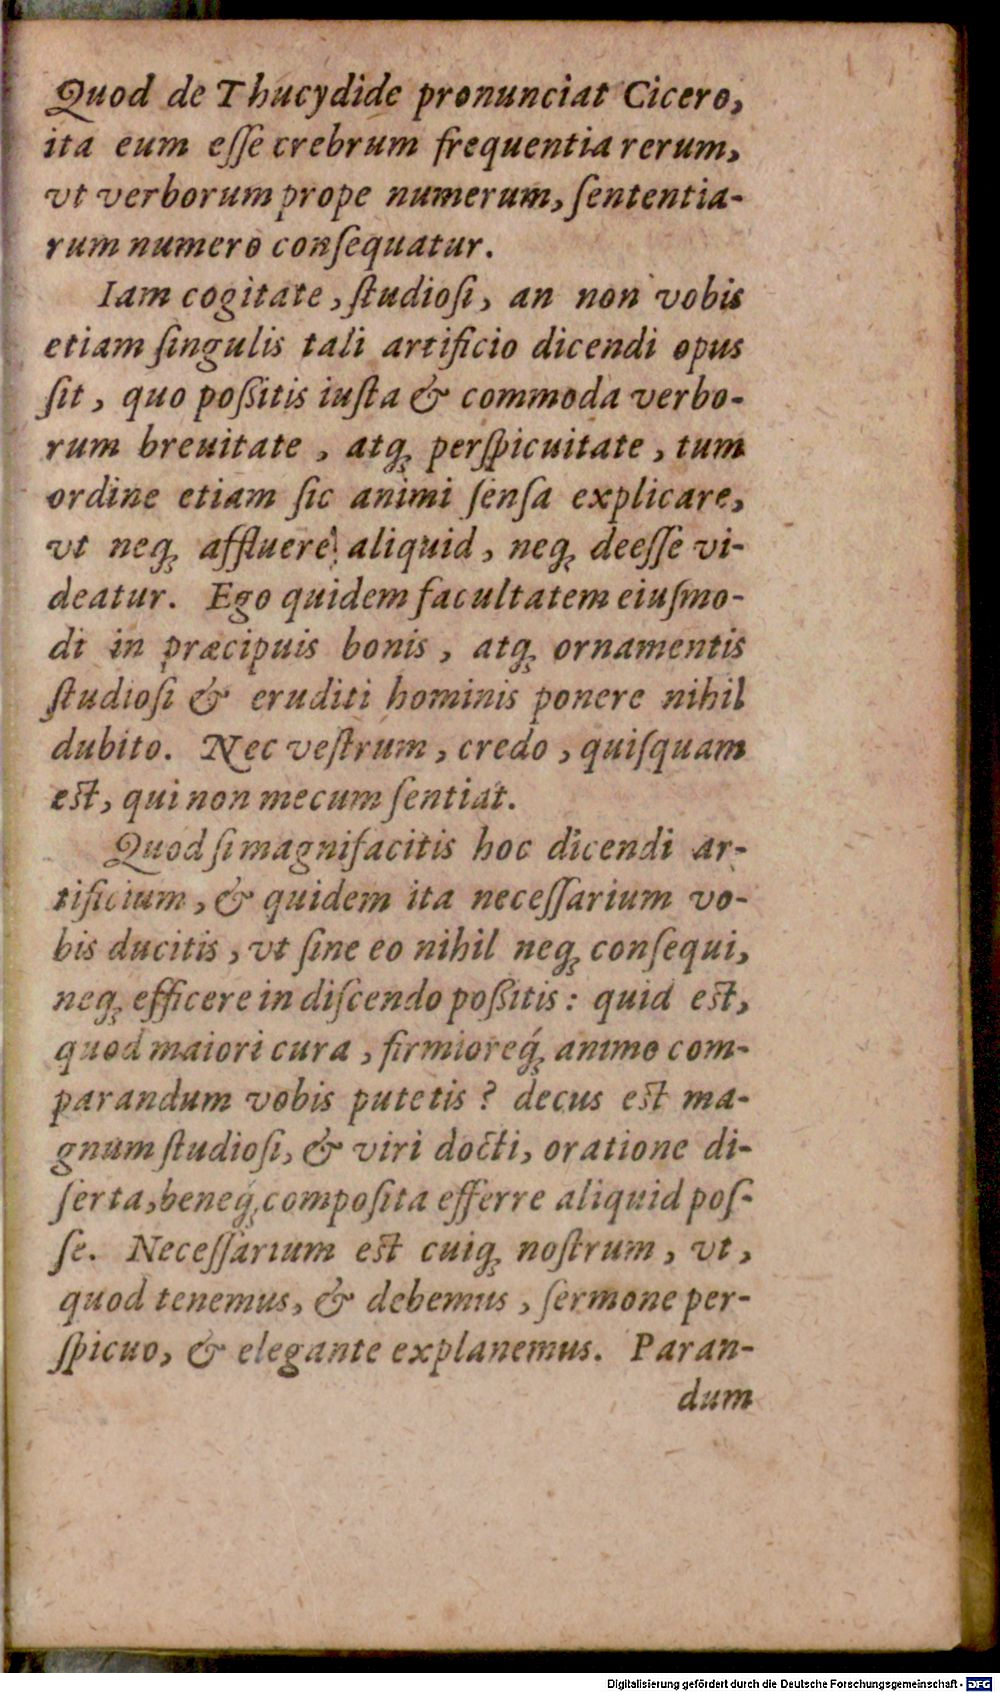 Quod de Thucydide pronunciat Cicero,
ita eum eſſe crebrum frequentia rerum,
vt verborum prope numerum, ſententia-
rum numero conſequatur.
Iam cogitate, ſtudioſi, an non vobis
etiam ſingulis tali artificio dicendi opus
ſit, quo poßitis iuſta & commoda verbo-
rum breuitate, atq; perſpicuitate, tum
ordine etiam ſic animi ſenſa explicare,
vt neq; affluere aliquid, neq; deeſſe vi-
deatur. Ego quidem facultatem eiuſmo-
di in præcipuis bonis, atq; ornamentis
ſtudioſi & eruditi hominis ponere nihil
dubito. Nec veſtrum, credo, quiſquam
eſt, qui non mecum ſentiat.
Quod ſi magnifacitis hoc dicendi ar-
tificium, & quidem ita neceſſarium vo-
bis ducitis, vt ſine eo nihil neq; conſequi,
neq; efficere in diſcendo poßitis: quid eſt,
quod maiori cura, firmioreq́; animo com-
parandum vobis putetis? decus eſt ma-
gnum ſtudioſi, & viri docti, oratione di-
ſerta, beneq́; compoſita efferre aliquid poſ-
ſe. Neceſſarium eſt cuiq; noſtrum, vt,
quod tenemus, & debemus, ſermone per-
ſpicuo, & elegante explanemus. Paran-
dum
Digitalisierung gefördert durch die Deutsche Forschungsgemeinschaft - DFG